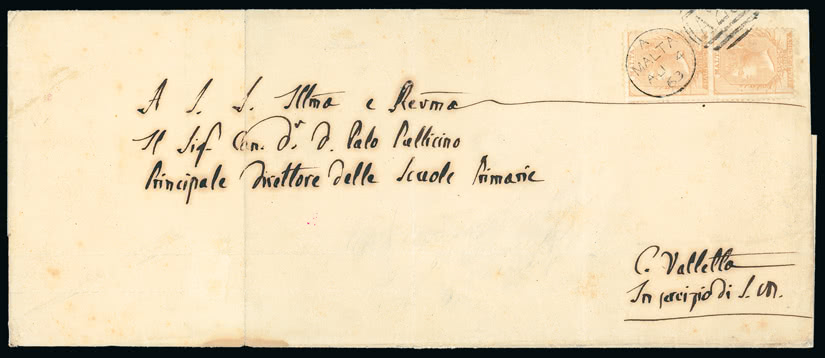 A
MALTA
AU 4
63
MALTA
A S. S. Illma e Revma
Il Sig. Can. Dr. D. Palo Pullicino
Principale Direttore delle Scuole Primarie
C. Valletta
In servizio di S. M.